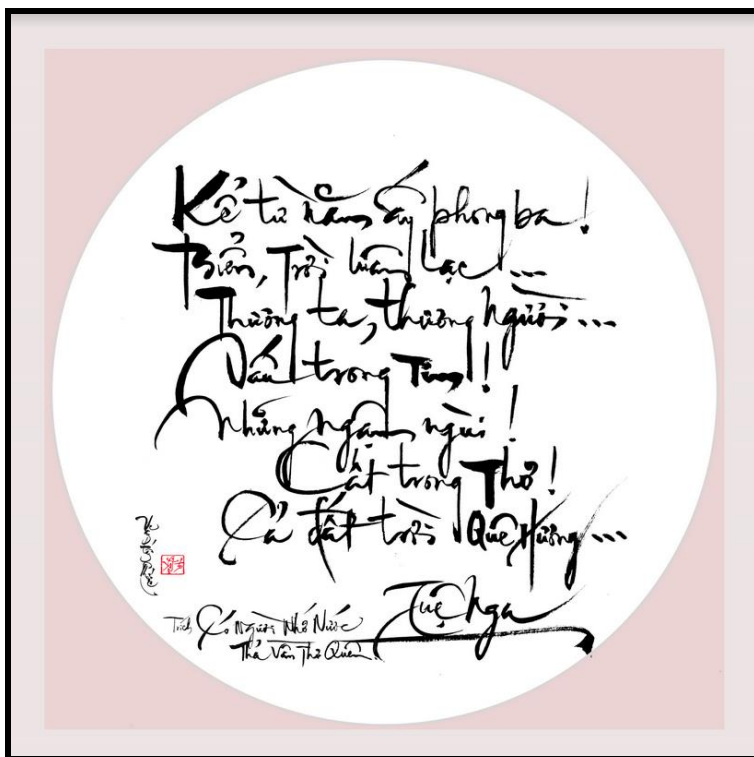 Kể từ năm ấy phong ba!
Biển, Trời luân lạc ...
Thương ta, thương người ...
Dấu trong Tim!
Những ngậm ngùi!
Cất trong Thơ!
Cả đất trời Quê Hương ...
Tuệ Nga
Trích Có Người Nhớ Nước
Thả Vần Thơ Quên